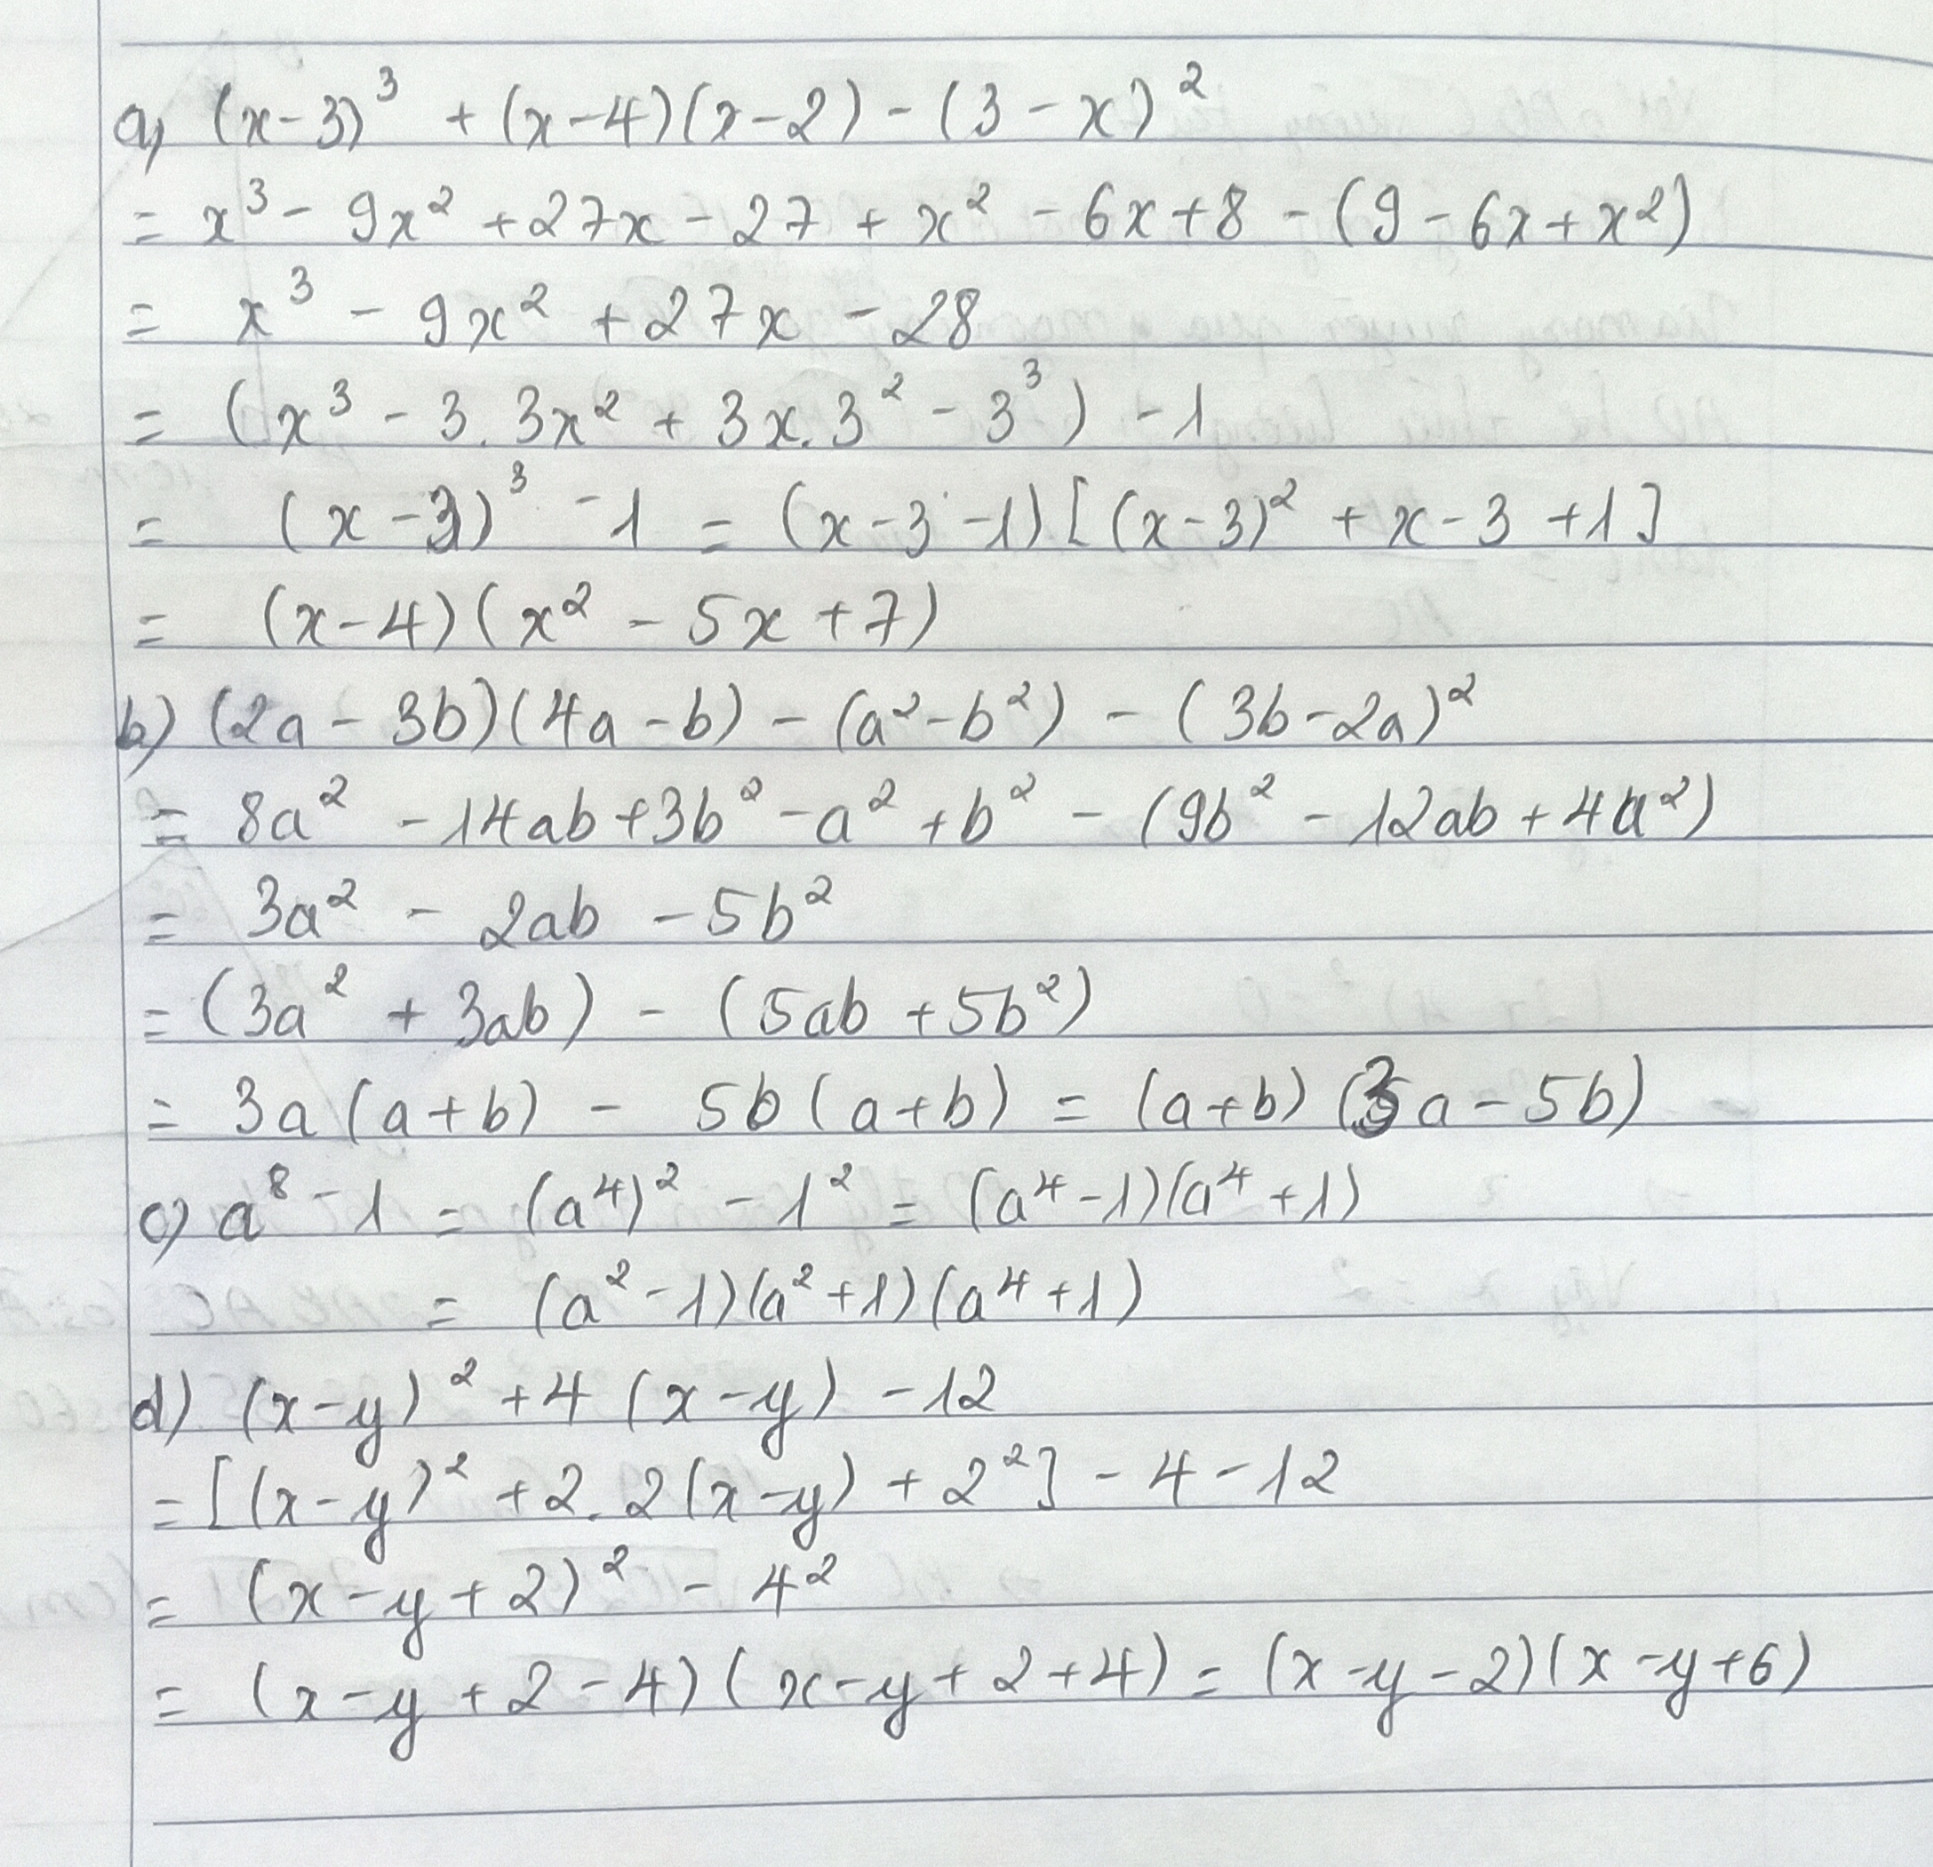 a, (x-3)³ + (x-4)(x-2) - (3-x)²
= x³ - 9x² + 27x - 27 + x² - 6x + 8 - (9 - 6x + x²)
= x³ - 9x² + 27x - 28
= (x³ - 3.3x² + 3x.3² - 3³) - 1
= (x-3)³ - 1 = (x-3-1)[(x-3)² + x-3 +1]
= (x-4)(x² - 5x + 7)
b) (2a - 3b)(4a - b) - (a² - b²) - (3b - 2a)²
= 8a² - 14ab + 3b² - a² + b² - (9b² - 12ab + 4a²)
= 3a² - 2ab - 5b²
= (3a² + 3ab) - (5ab + 5b²)
= 3a(a+b) - 5b(a+b) = (a+b)(3a - 5b)
c) a⁸ - 1 = (a⁴)² - 1² = (a⁴ - 1)(a⁴ + 1)
= (a² - 1)(a² + 1)(a⁴ + 1)
d) (x-y)² + 4(x-y) - 12
= [(x-y)² + 2.2(x-y) + 2²] - 4 - 12
= (x-y+2)² - 4²
= (x-y+2-4)(x-y+2+4) = (x-y-2)(x-y+6)